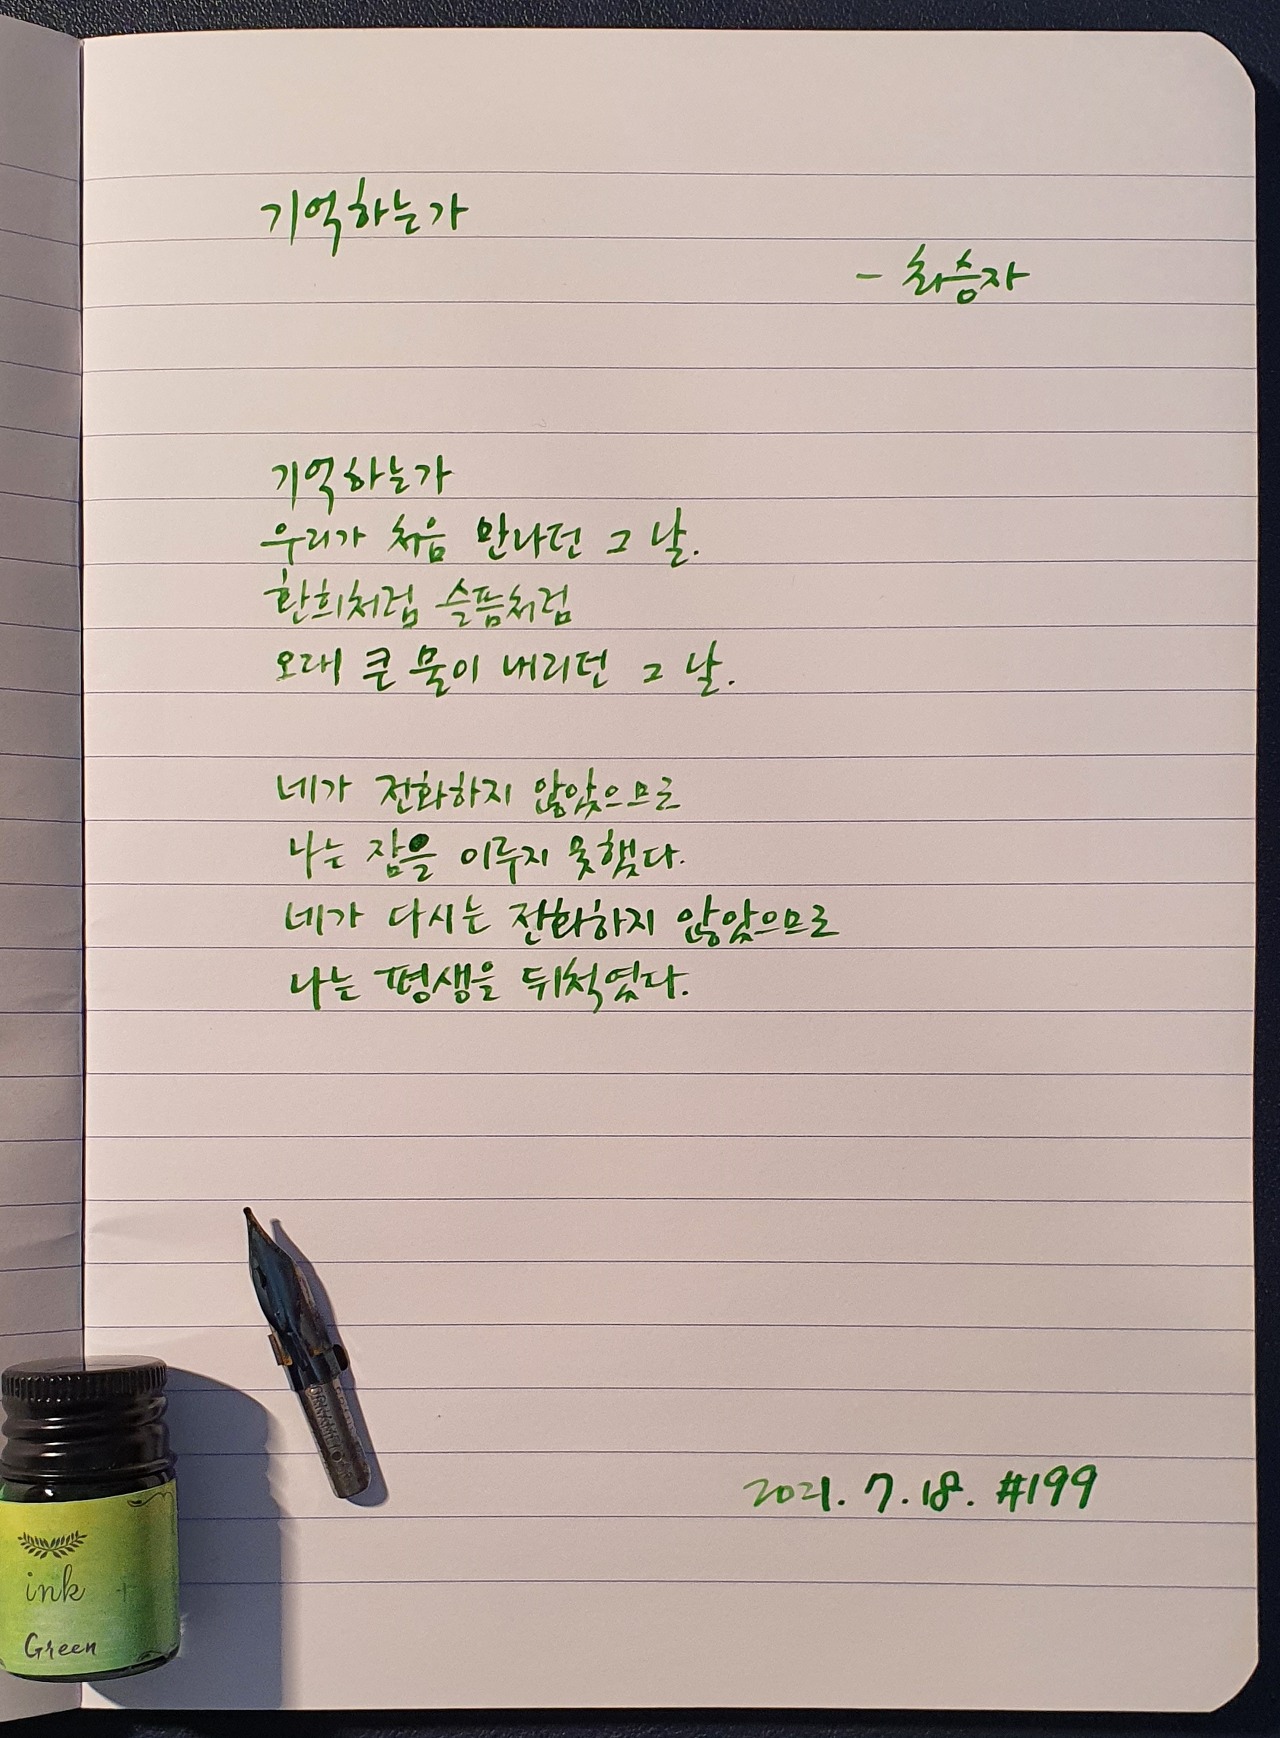 기억하는가
- 최승자
기억하는가
우리가 처음 만나던 그 날.
환희처럼 슬픔처럼
오래 큰 물이 내리던 그 날.
네가 전화하지 않았으므로
나는 잠을 이루지 못했다.
네가 다시는 전화하지 않았으므로
나는 평생을 뒤척였다.
2021. 7. 18. #199
ink +
Green